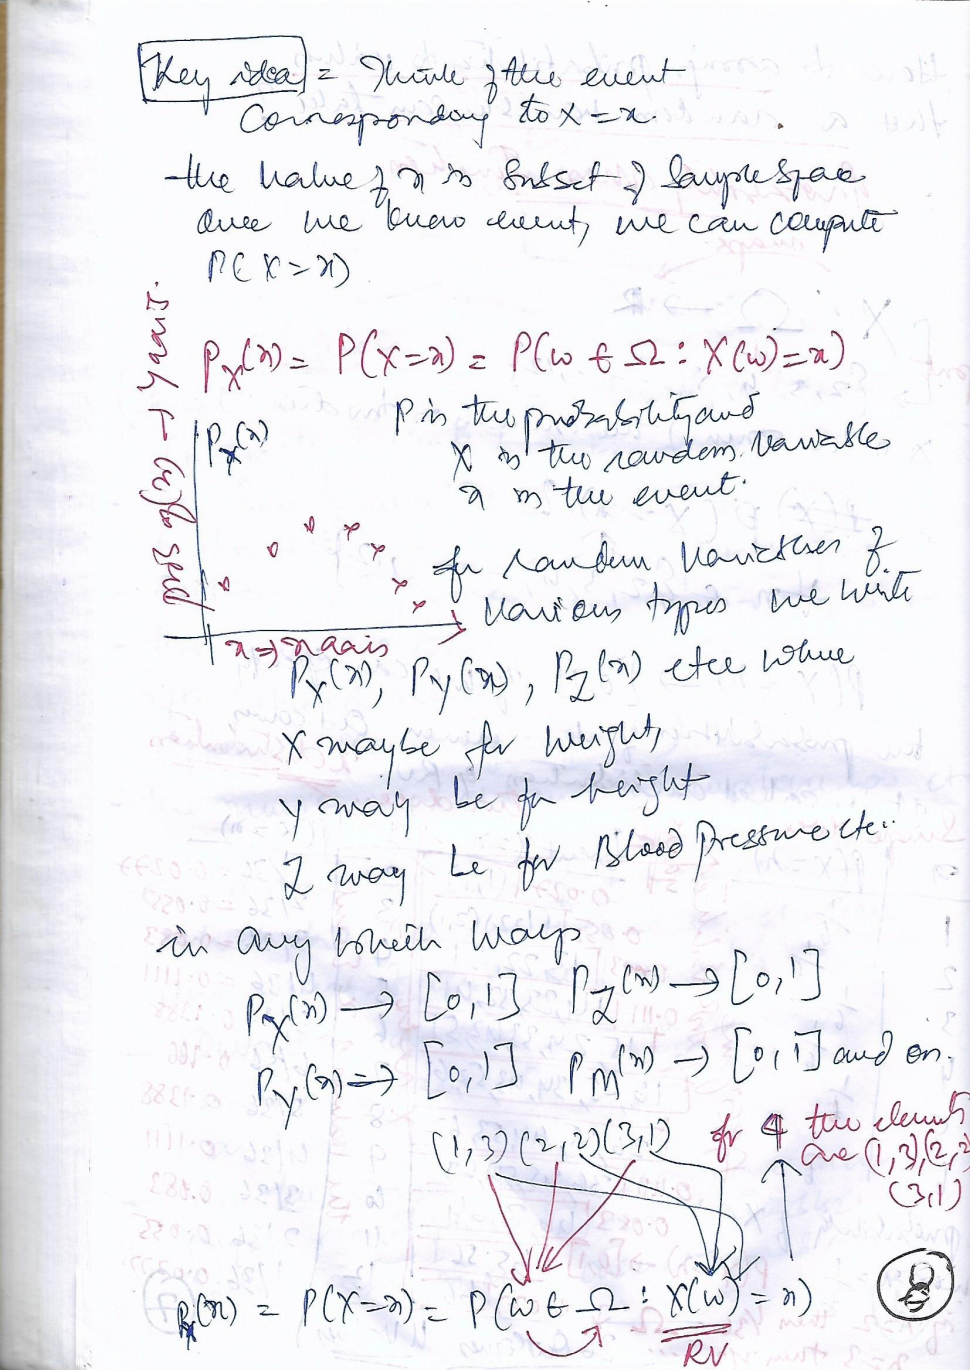 Key idea = Think of the event
Corresponding to X = x.
the value of x is subset of Sample Space
Once we know event, we can compute
P(X = x)
P_X(x) = P(X=x) = P(ω ∈ Ω : X(ω) = x)
P is the probability and
X is the random variable
x is the event.
P_X(x)
→ yaxis.
x → x axis
for random variables of
various types we write
P_X(x), P_Y(x), P_Z(x) etc where
X maybe for weight,
Y may be for height
Z may be for Blood Pressure etc..
in any which ways
P_X(x) → [0,1] P_Z(x) → [0,1]
P_Y(x) → [0,1] P_M(x) → [0,1] and on.
(1,3) (2,2) (3,1) for 4 the elements
are (1,3),(2,2)
(3,1)
P_X(x) = P(X=x) = P(ω ∈ Ω : X(ω) = x)
RV
8